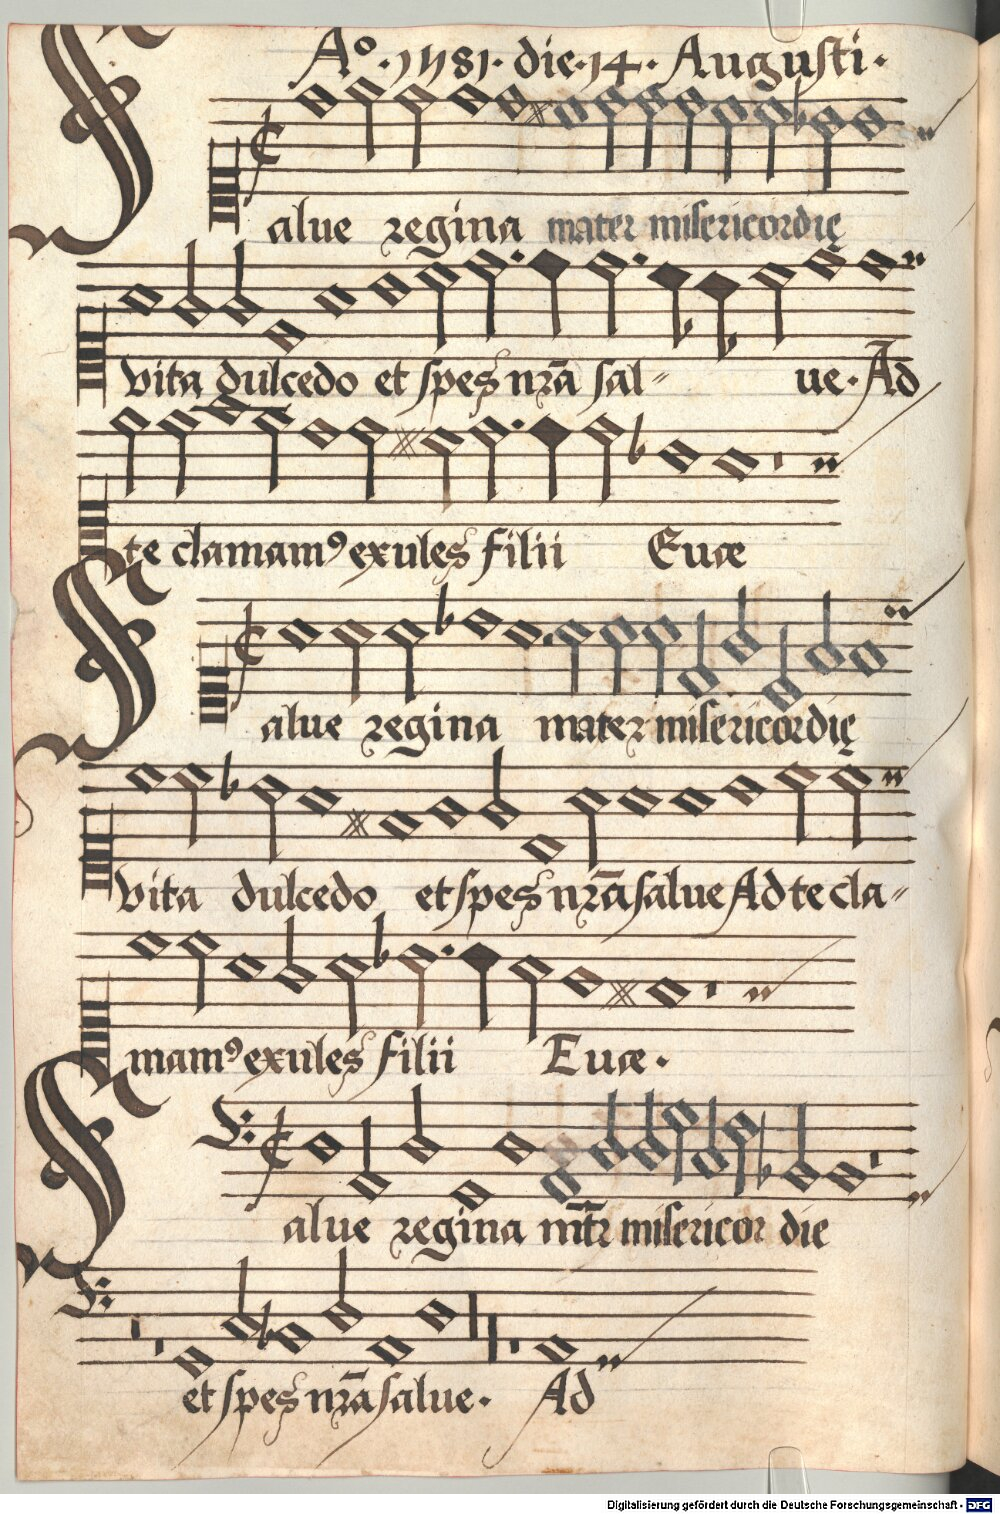 Aº · 1581 · die · 14 · Augusti ·
Salue regina mater misericordię
Vita dulcedo et spes nr̄a sal〃 ue · Ad
te clamamꝰ exules filii Euæ
Salue regina mater misericordię
Vita dulcedo et spes nr̄a salue Ad te cla〃
mamꝰ exules filii Euæ ·
Salue regina mr̄t misericor die
et spes nr̄a salue · Ad
Digitalisierung gefördert durch die Deutsche Forschungsgemeinschaft - DFG